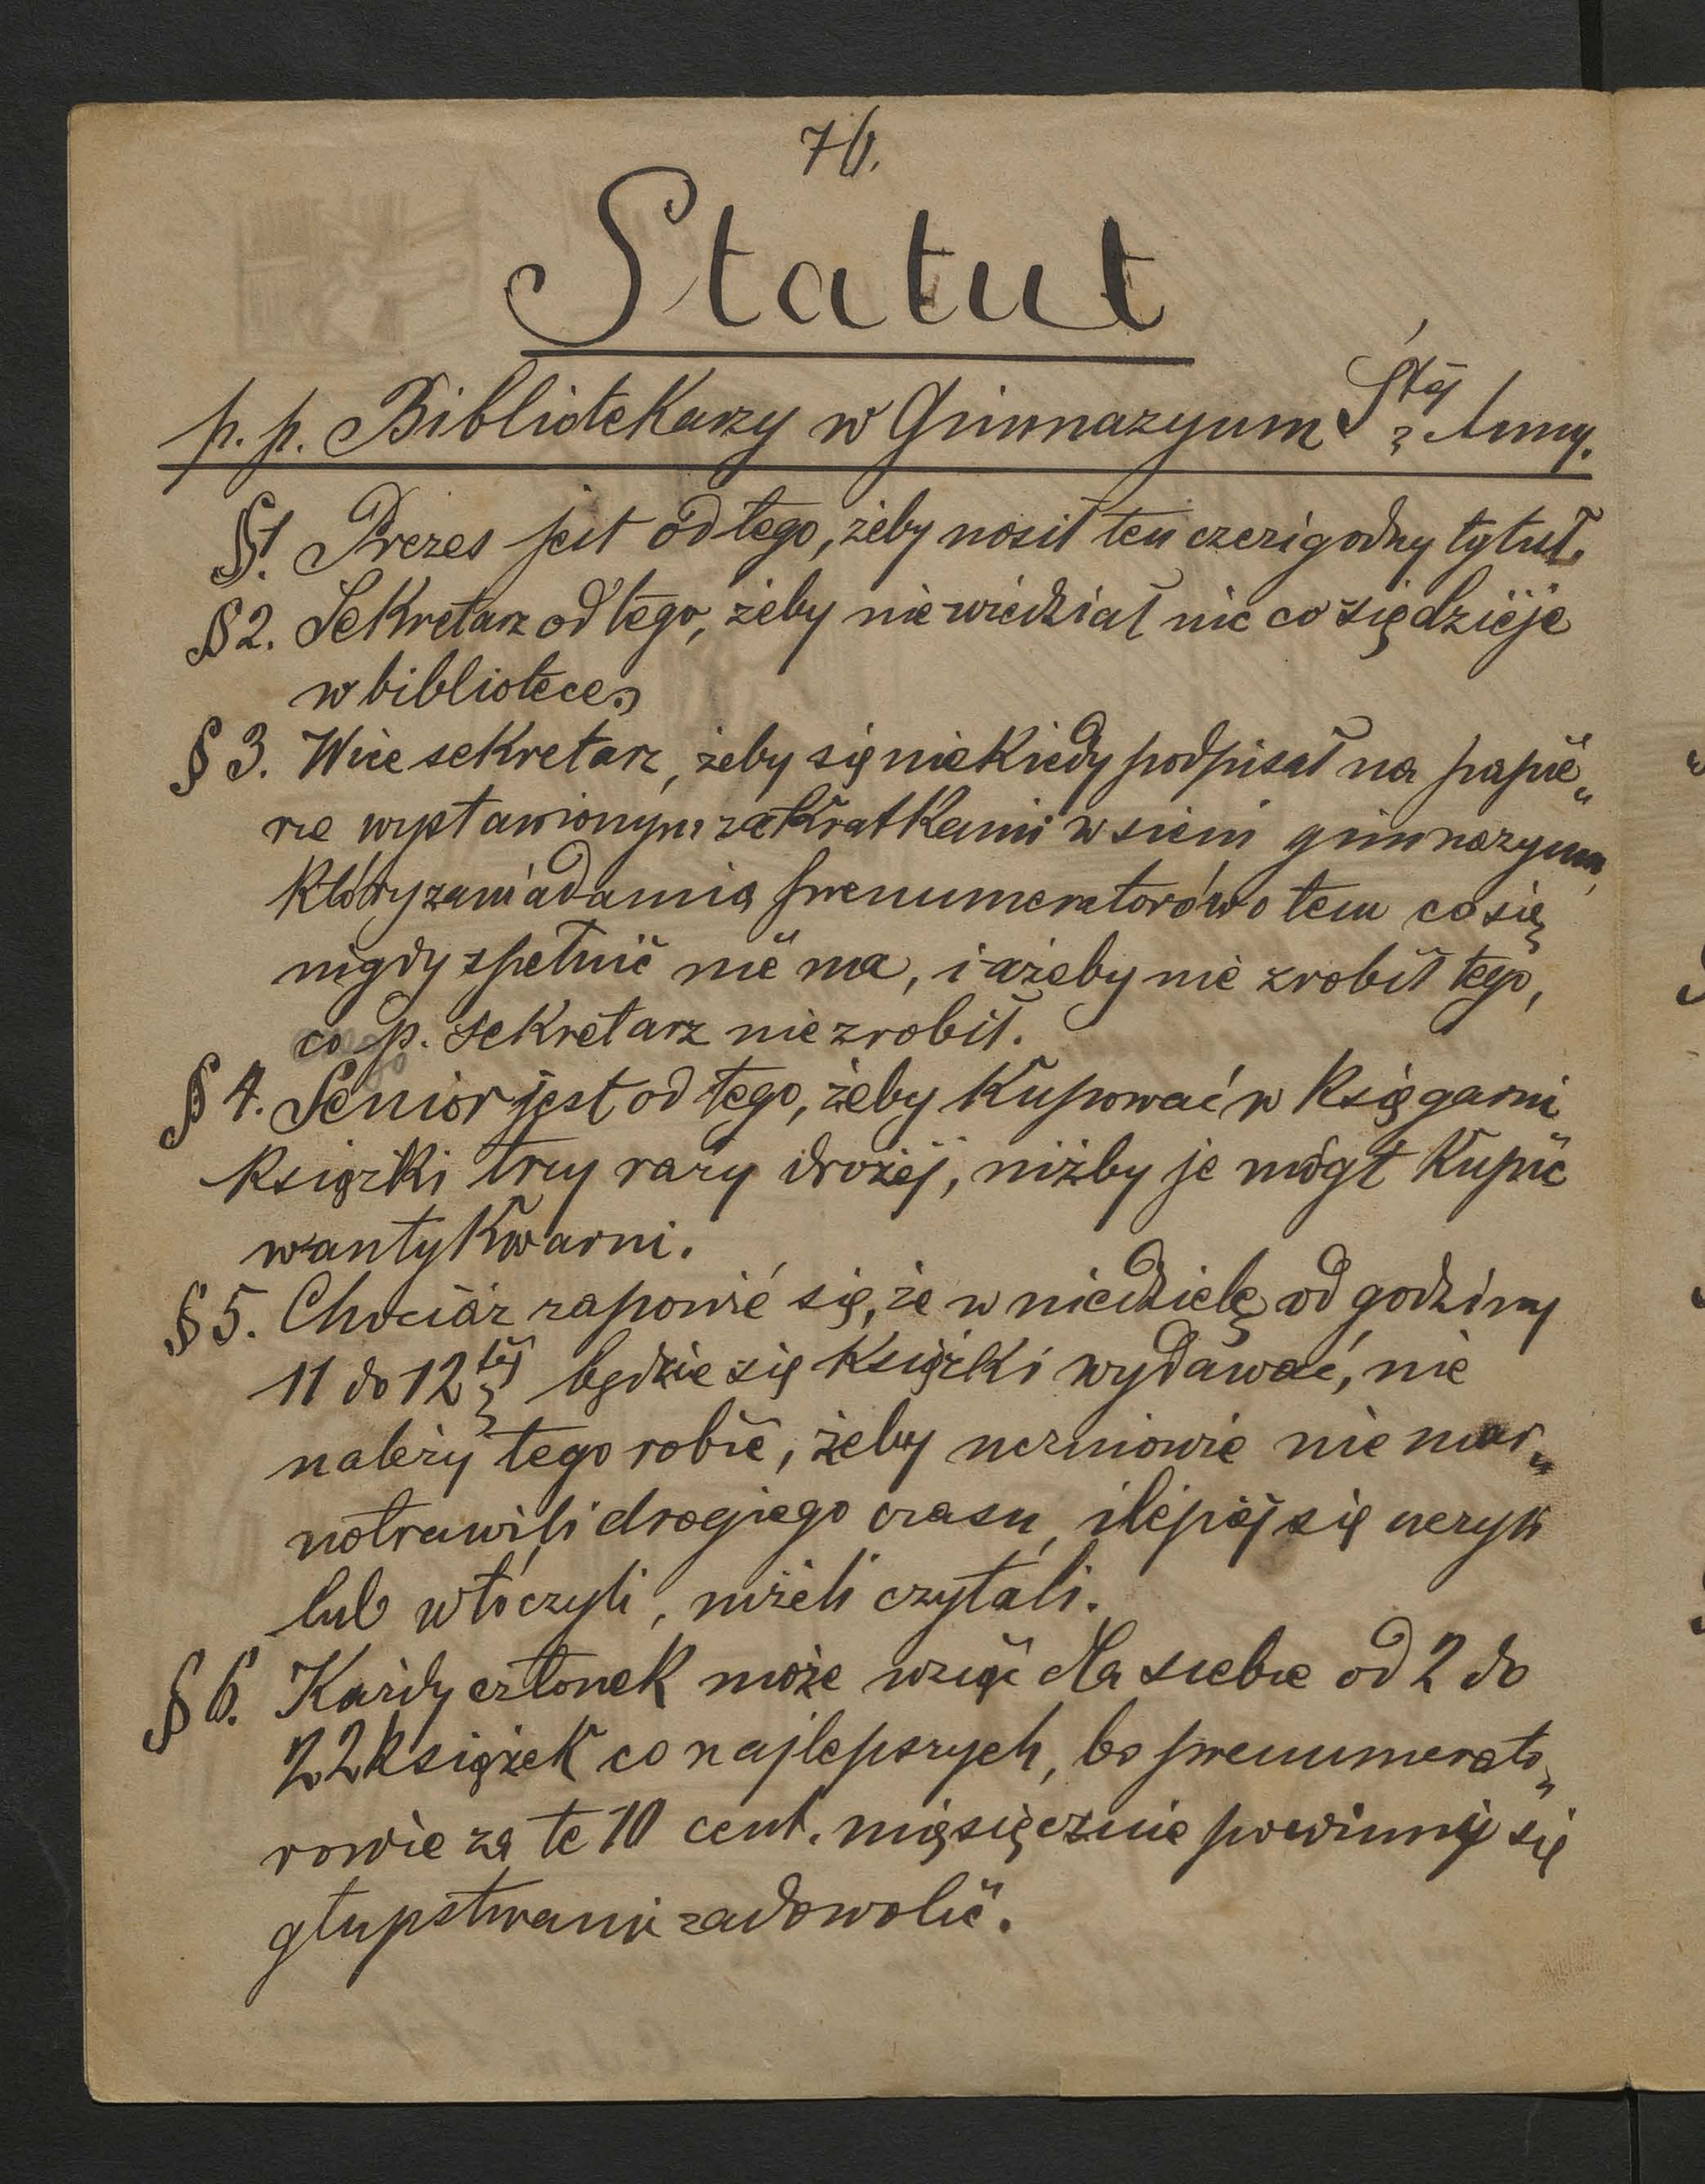 76.
Statut
p. p. Bibliotekarzy w Gimnazyum Śtéj Anny.
§1. Prezes jest od tego, żeby nosił ten czcigodny tytuł.
§ 2. Sekretarz od tego, żeby nie wiedział nic co się dzieje
w bibliotece.
§ 3. Wice sekretarz, żeby się niekiedy podpisał na papie„
rze wystawionym za kratkami w sieni gimnazyum,
który zawiadamia prenumeratorów o tem co się
nigdy spełnić nie ma, i ażeby nie zrobił tego,
co p. sekretarz nie zrobił.
§ 4. Senior jest od tego, żeby kupować w księgarni
książki trzy razy drożéj, niżby je mógł kupić
w antykwarni.
§ 5. Chociaż zapowié się, że w niedzielę od godziny
11 do 12téj będzie się książki wydawać, nie
należy tego robić, żeby uczniowie nie mar„
notrawili drogiego czasu, i lepiéj się uczyli
lub włóczyli, niżeli czytali.
§ 6. Każdy członek może wziąć dla siebie od 2 do
22 książek co najlepszych, bo prenumerato„
rowie za te 10 cent. miesięcznie powinny się
głupstwami zadowolić.